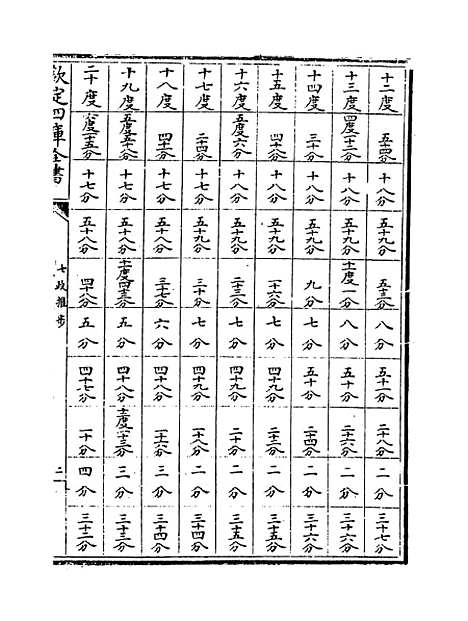 十二度 五十四分 十八分 五十九分 五十三分 八分 五十一分 二十八分 二分 三十七分
十三度 四度一十二分 十八分 五十九分 十一度一分 八分 五十分 二十六分 二分 三十六分
十四度 三十分 十八分 五十九分 九分 七分 五十分 二十四分 二分 三十六分
十五度 四十八分 十八分 五十九分 一十六分 七分 四十九分 二十二分 二分 三十五分
十六度 五度六分 十八分 五十九分 二十三分 七分 四十九分 二十分 二分 三十五分
十七度 二十四分 十七分 五十九分 三十分 七分 四十九分 一十八分 二分 三十四分
十八度 四十一分 十七分 五十八分 三十七分 六分 四十八分 一十六分 三分 三十四分
十九度 五度五十八分 十七分 五十八分 十一度四十三分 五分 四十八分 十二度一十三分 三分 三十三分
二十度 六度一十五分 十七分 五十八分 四十八分 五分 四十七分 一十分 四分 三十二分
欽定四庫全書 七政推步